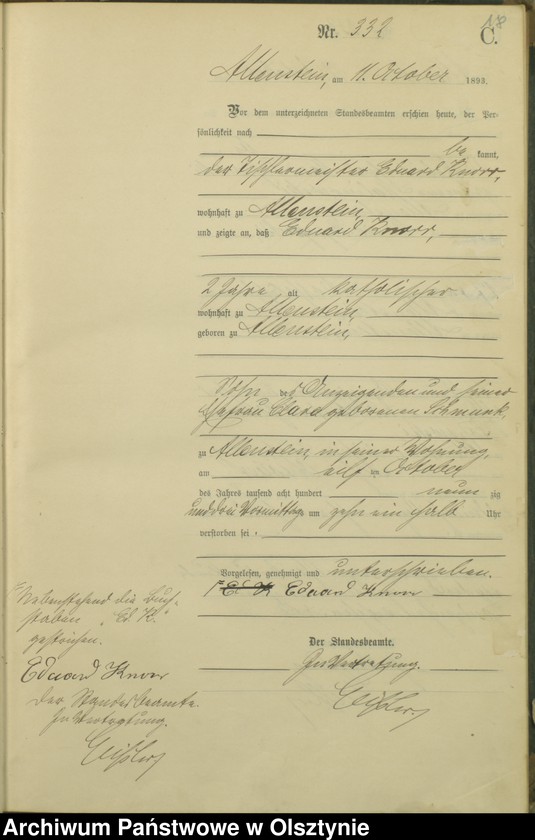 Nr. 332
C.
Allenstein, am 11. October 1893.
Vor dem unterzeichneten Standesbeamten erschien heute, der Per-
sönlichkeit nach
be kannt,
der Tischlermeister Eduard Knorr,
wohnhaft zu Allenstein,
und zeigte an, daß Eduard Knorr,
2 Jahre alt katholischer
wohnhaft zu Allenstein,
geboren zu Allenstein,
Sohn des Anzeigenden und seiner
Ehefrau Clara geborenen
zu Allenstein, in seiner Wohnung,
am eilf ten October
des Jahres tausend acht hundert neun zig
und drei Vormittags um zehn ein halb Uhr
verstorben sei.
Vorgelesen, genehmigt und unterschrieben.
Ed K Eduard Knorr
Nebenstehend die Buch-
staben "Ed K."
gestrichen.
Eduard Knorr
Der Standesbeamte.
In Vertretung.
Der Standesbeamte.
In Vertretung.
Archiwum Państwowe w Olsztynie